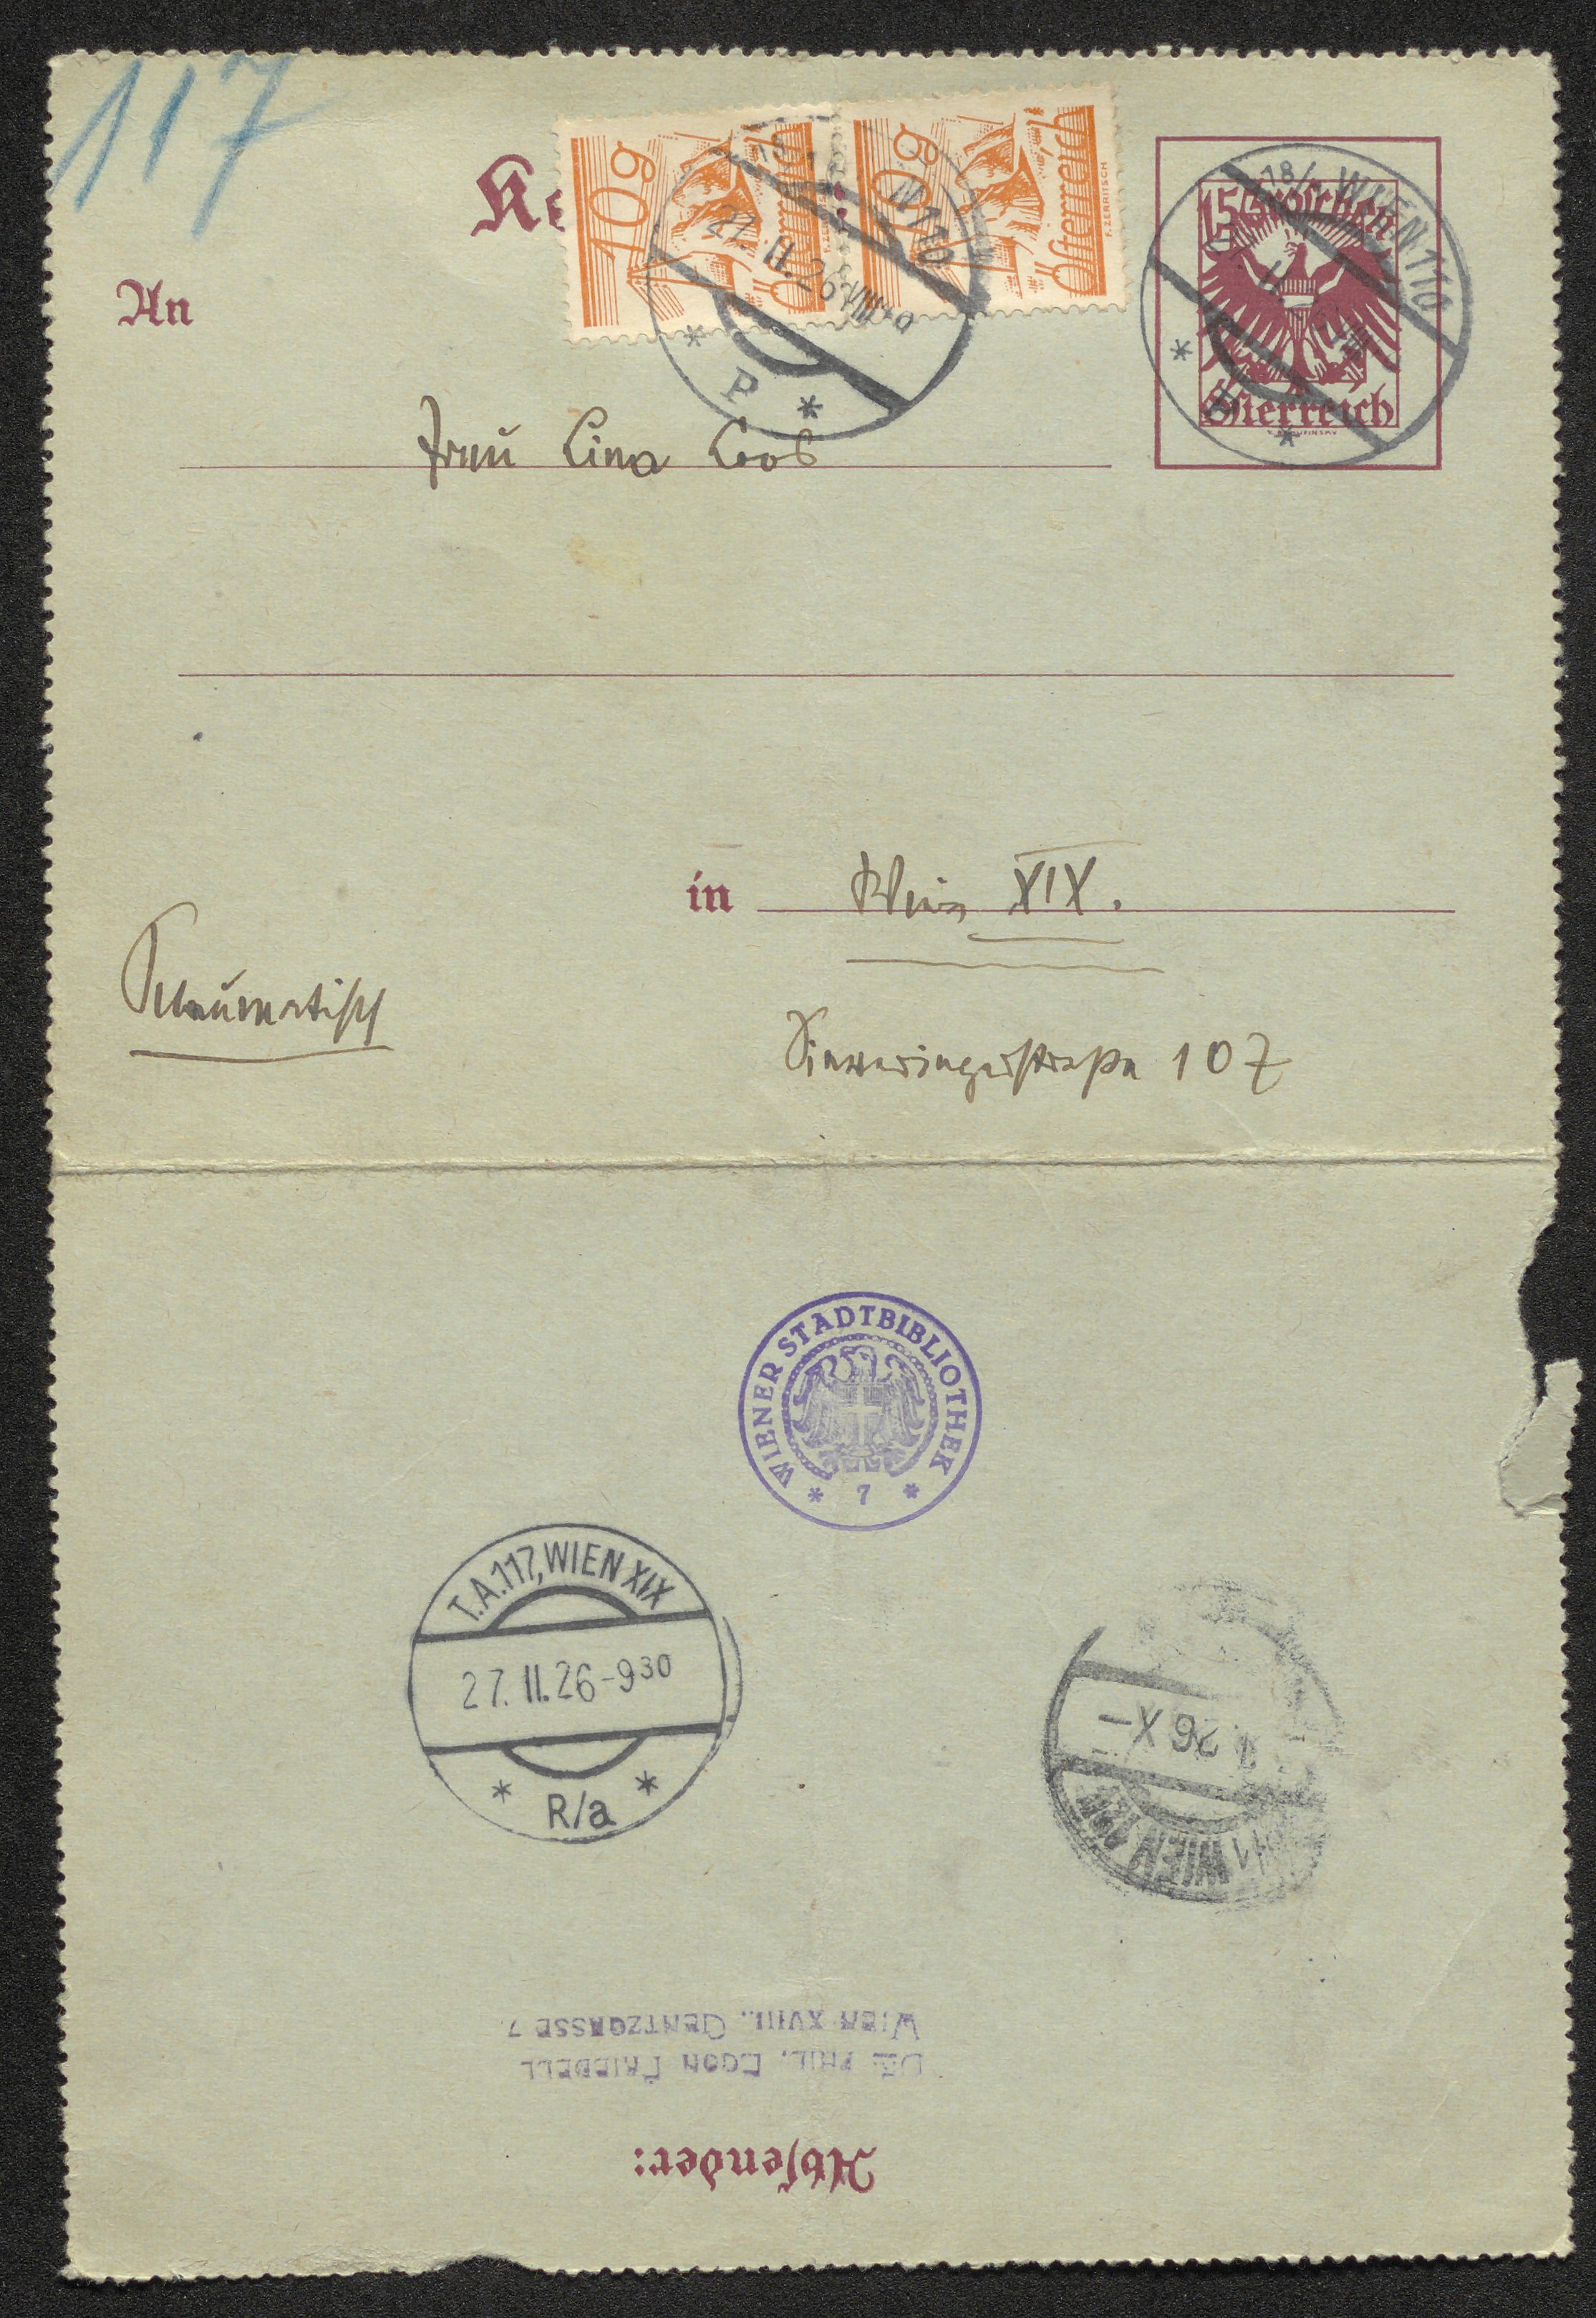 117
10g
Österreich
10g
Österreich
F. ZERRITSCH
15 Groschen
Österreich
18/1 WIEN 110
27. II. 26
110
P
An
Frau Lina Loos
in Wien XIX.
Pneumatisch
Sieveringerstraße 107
WIENER STADTBIBLIOTHEK
* 7 *
T.A.117, WIEN XIX
27. II. 26-9 30
* R/a *
26 X-
WIEN
WIEN XVIII., GENTZGASSE 7
DR. PHIL. EGON FRIEDELL
Absender: